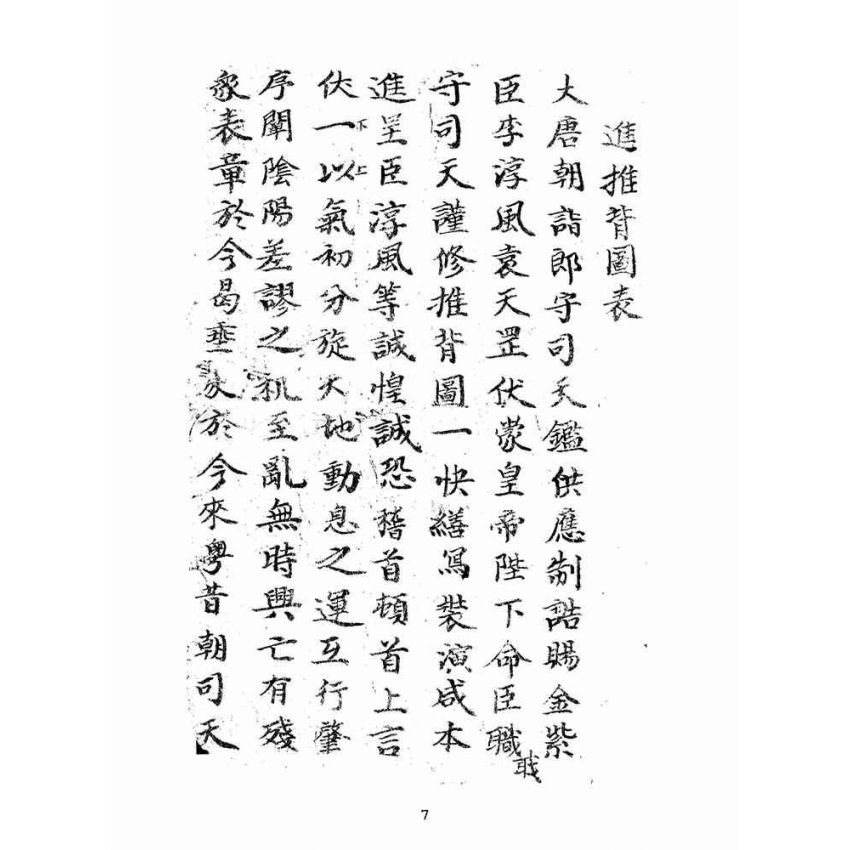 進推背圖表
大唐朝詣郎守司天鑑供應制誥賜金紫
臣李淳風袁天罡伏蒙皇帝陛下命臣職
守司天謹修推背圖一快繕寫裝演成本
進呈臣淳風等誠惶誠恐稽首頓首上言
伏一下以上氣初分旋天地動息之運互行肇
序闡陰陽差謬之机至亂無時興亡有殘
表章於今曷垂象於今來粵昔朝司天
7